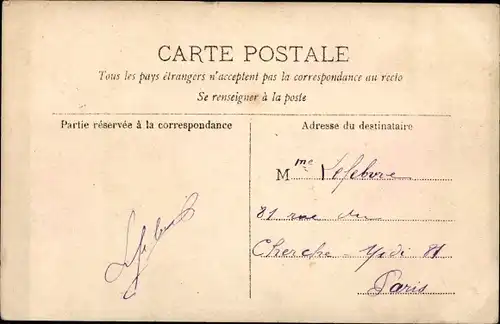 CARTE POSTALE
Tous les pays étrangers n'acceptent pas la correspondance au recto
Se renseigner à la poste
Partie réservée à la correspondance
Adresse du destinataire
Mme Lefebvre
81 rue du
Cherche-Midi 81
Paris